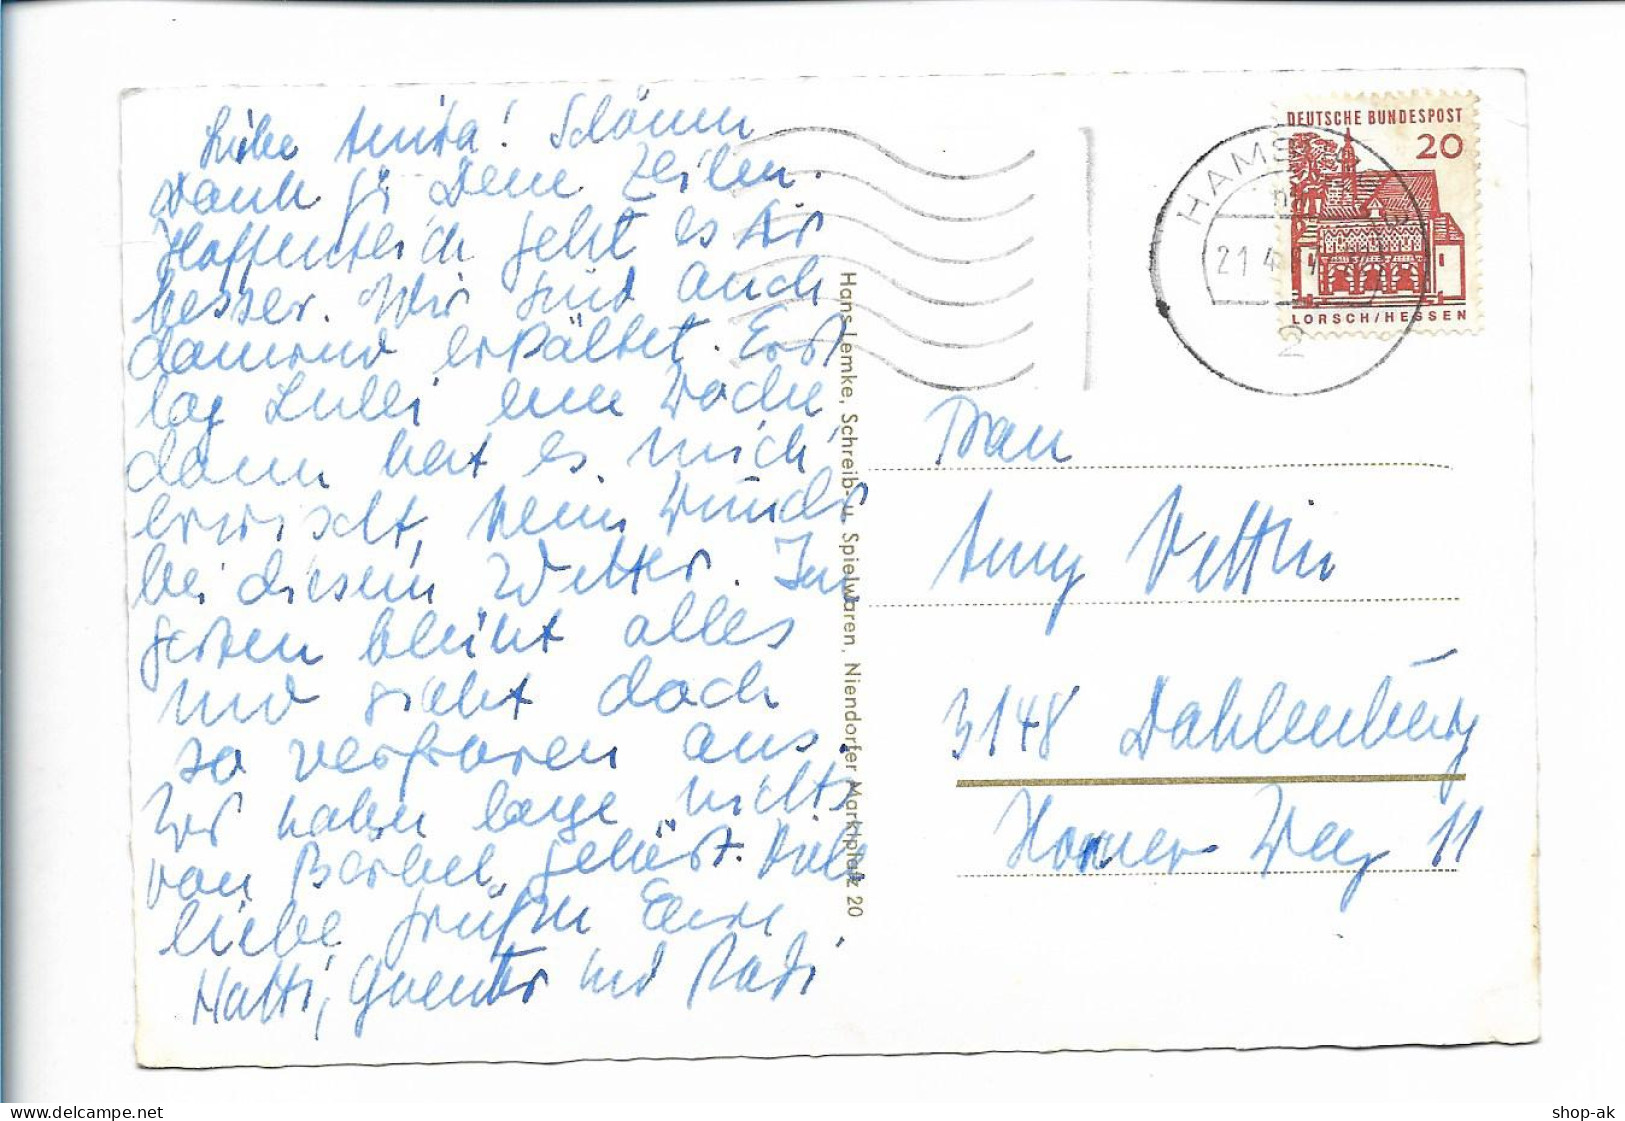 Liebe Anita! Schönen
Dank für Deine Zeilen.
Hoffentlich geht es Dir
besser. Wir sind auch
dauernd erkältet. Erst
lag Lulli eine Woche
dann hat es mich
erwischt, kein Wunder
bei diesem Wetter. Im
Garten bleibt alles
und sieht doch
so verfroren aus.
Wir haben lange nichts
von Bärbel gehört. Viele
liebe Grüße Eure
Hatti, Guenter und Rudi
Hans Lemke, Schreib- u. Spielwaren, Niendorfer Marktplatz 20
DEUTSCHE BUNDESPOST
20
LORSCH/HESSEN
21.4.
2
Frau
Vettin
3148 Dahlenburg
Horner Weg 11
delcampe.net
shop-ak